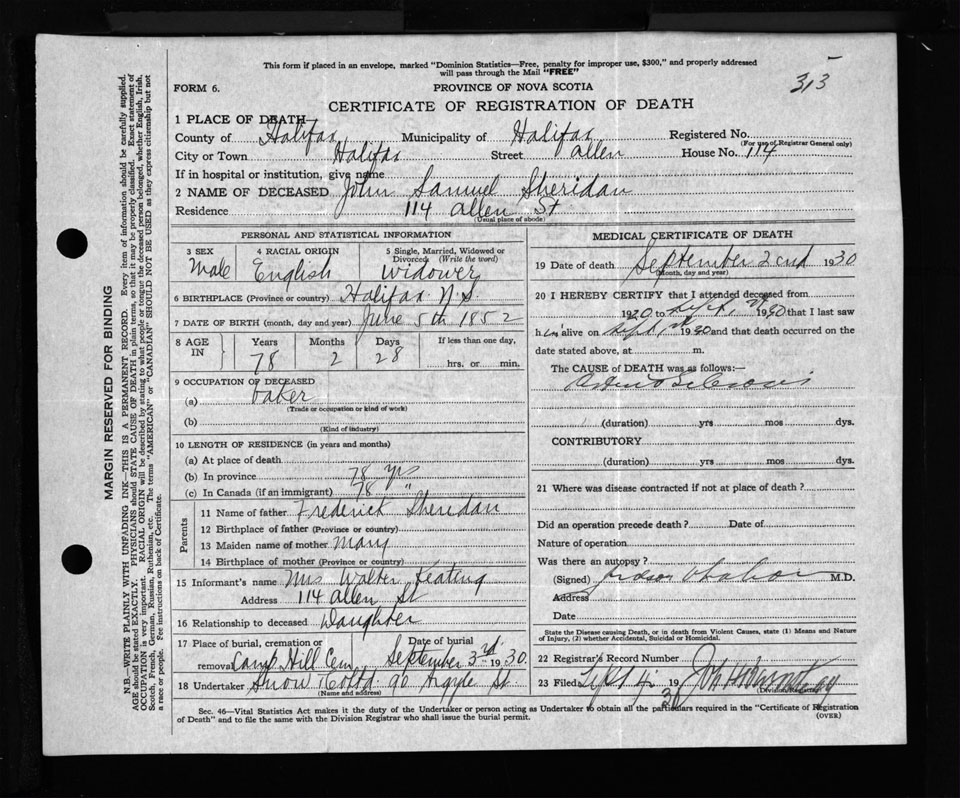 This form if placed in an envelope, marked "Dominion Statistics—Free, penalty for improper use, $300," and properly addressed
will pass through the Mail "FREE"
313
FORM 6.
PROVINCE OF NOVA SCOTIA
CERTIFICATE OF REGISTRATION OF DEATH
1 PLACE OF DEATH
County of Halifax Municipality of Halifax Registered No.
(For use of Registrar General only)
City or Town Halifax Street Allen House No. 114
If in hospital or institution, give name
2 NAME OF DECEASED John Samuel Sheridan
Residence 114 Allen St
(Usual place of abode)
PERSONAL AND STATISTICAL INFORMATION
3 SEX 4 RACIAL ORIGIN 5 Single, Married, Widowed or
Divorced (Write the word)
Male English Widower
6 BIRTHPLACE (Province or country) Halifax N.S.
7 DATE OF BIRTH (month, day and year) June 5th 1852
8 AGE IN Years Months Days If less than one day,
78 2 28 hrs. or min.
9 OCCUPATION OF DECEASED
(a) baker
(Trade or occupation or kind of work)
(b)
(Kind of industry)
10 LENGTH OF RESIDENCE (in years and months)
(a) At place of death
(b) In province 78 yrs
(c) In Canada (if an immigrant) 78 "
Parents
11 Name of father Frederick Sheridan
12 Birthplace of father (Province or country)
13 Maiden name of mother Mary
14 Birthplace of mother (Province or country)
15 Informant's name Mrs Walter Keating
Address 114 Allen St
16 Relationship to deceased Daughter
17 Place of burial, cremation or Date of burial
removal Camp Hill Cem September 3rd 1930.
18 Undertaker Snow & Co Ltd 90 Argyle St
(Name and address)
MEDICAL CERTIFICATE OF DEATH
19 Date of death September 2nd 1930
(Month, day and year)
20 I HEREBY CERTIFY that I attended deceased from
1920 to Sept. 1930 that I last saw
him alive on Sept 1st 1930 and that death occurred on
the date stated above, at m.
The CAUSE of DEATH was as follows:—
Arterio Sclerosis
(duration) yrs mos dys.
CONTRIBUTORY
(duration) yrs mos dys.
21 Where was disease contracted if not at place of death?
Did an operation precede death? Date of
Nature of operation
Was there an autopsy?
(Signed) M.D.
Address
Date
State the Disease causing Death, or in death from Violent Causes, state (1) Means and Nature
of Injury, (2) whether Accidental, Suicidal or Homicidal.
22 Registrar's Record Number
23 Filed Sept 4 19 30
(Division Registrar)
Sec. 46—Vital Statistics Act makes it the duty of the Undertaker or person acting as Undertaker to obtain all the particulars required in the "Certificate of Registration
of Death" and to file the same with the Division Registrar who shall issue the burial permit.
(OVER)
MARGIN RESERVED FOR BINDING
N.B.—WRITE PLAINLY WITH UNFADING INK—THIS IS A PERMANENT RECORD. Every item of information should be carefully supplied.
AGE should be stated EXACTLY. PHYSICIANS should STATE CAUSE OF DEATH in plain terms, so that it may be properly classified. Exact statement of
OCCUPATION is very important. RACIAL ORIGIN will be described by stating to what people or tongue the deceased person belonged, whether English, Irish,
Scotch, French, German, Russian, Ruthenian, etc. The terms "AMERICAN" or "CANADIAN" SHOULD NOT BE USED as they express citizenship but not
a race or people. Fee instructions on back of Certificate.